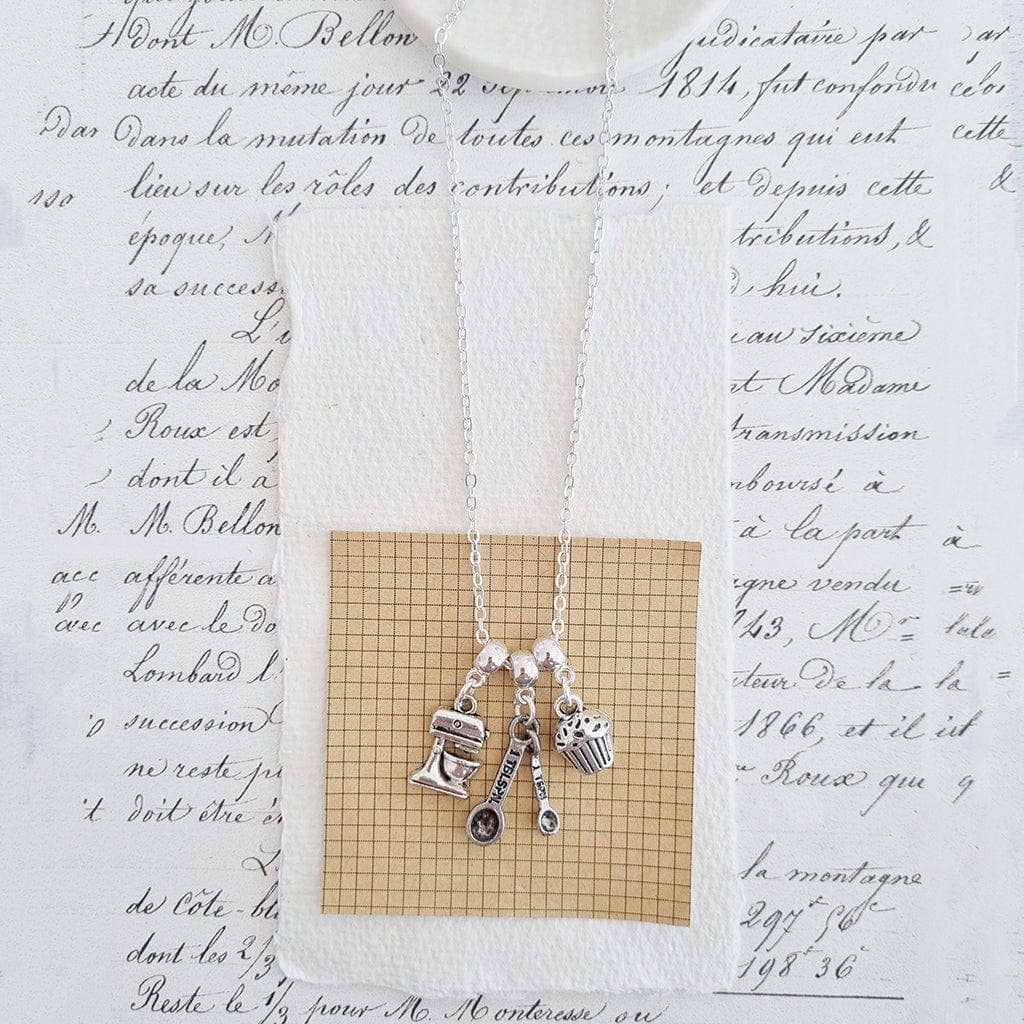 dont M. Bellon judicataire par
acte du même jour 22 1814, fut confondu
dans la mutation de toutes ces montagnes qui eut cette
lieu sur les rôles des contributions; et depuis cette &
époque, tributions, &
sa success hui.
L' au sixième
de la Mo nt Madame
Roux est transmission
dont il a mboursé à
M. M. Bellon à la part à
acc afférente a agne vendu
avec avec le do 43, M.r
Lombard l' teur de la la
succession 1866, et il est
ne reste p Roux qui q
t doit être e
la montagne
de Côte-bl 297f 56c
dont les 2/3 198f 36c
Reste le 1/3 pour M. M. Monteresse ou
1 TBLSPN.
1 TSP.